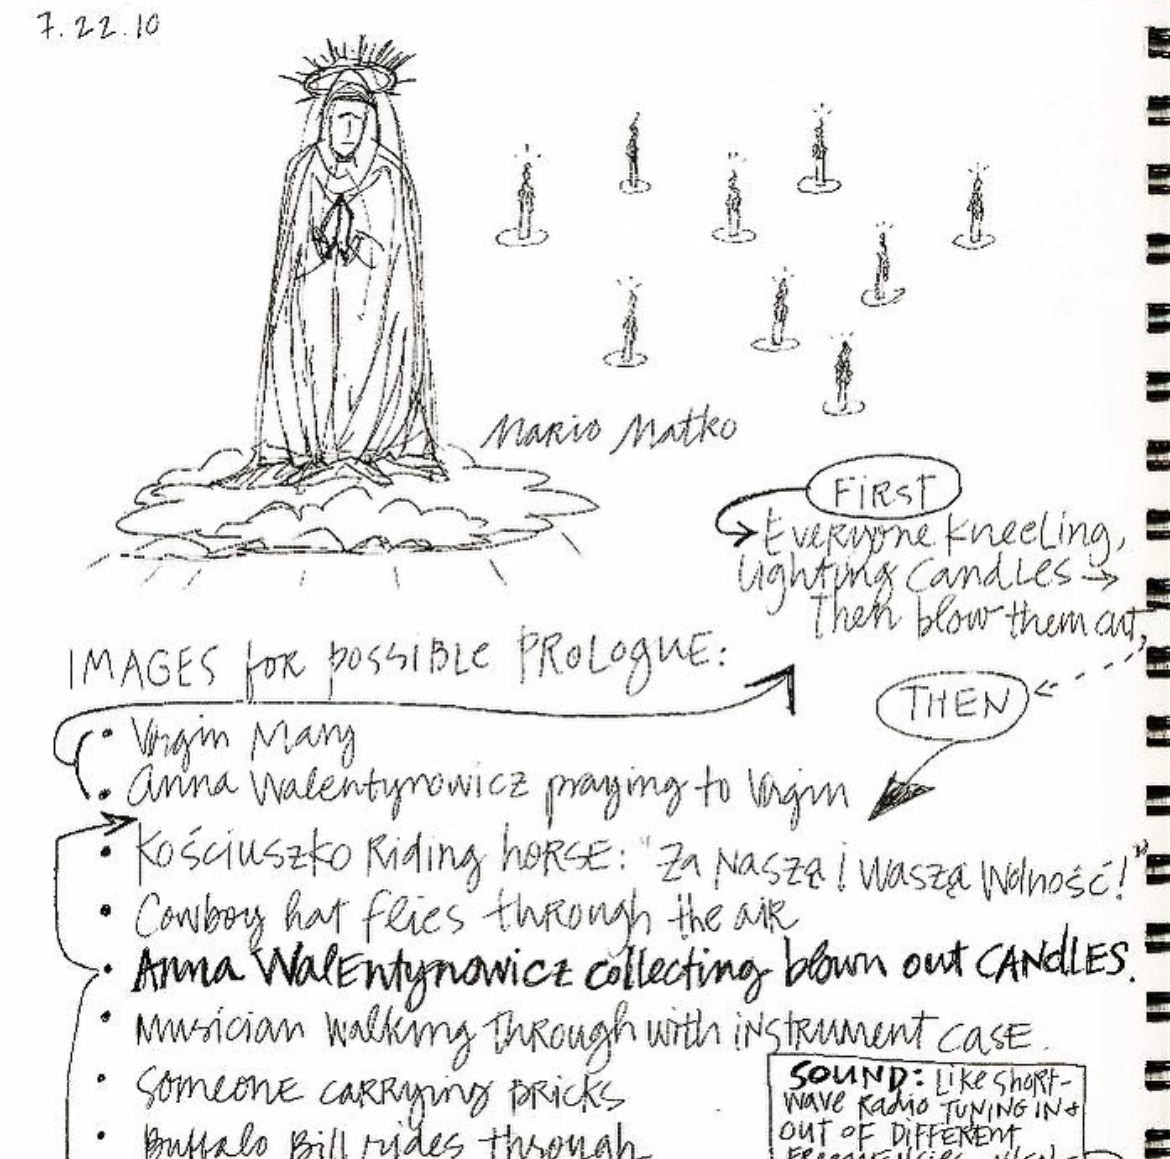 7.22.10
Mario Matko
FIRST
Everyone kneeling,
Lighting candles →
Then blow them out,
IMAGES for possible PROLOGUE:
THEN
• Virgin Mary
• Anna Walentynowicz praying to Virgin
• Kościuszko Riding horse: "Za Naszą i Waszą Wolność!"
• Cowboy hat flies through the air
• Anna Walentynowicz collecting blown out CANDLES.
• Musician walking through with instrument case.
• Someone carrying bricks
• Buffalo Bill rides through
SOUND: Like short-
wave Radio TUNING IN &
OUT OF DIFFERENT